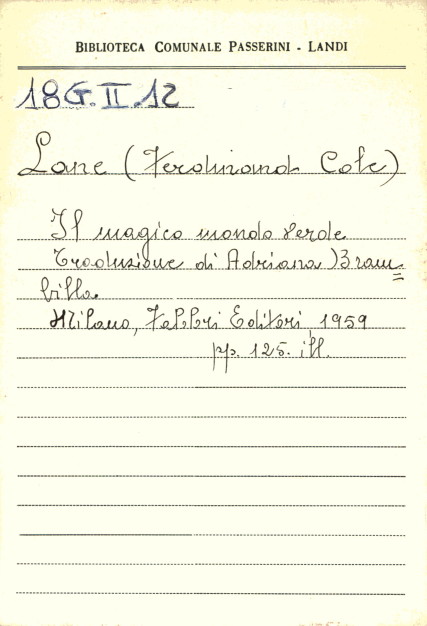 BIBLIOTECA COMUNALE PASSERINI - LANDI
18G.II.12
Lane (Ferdinand Cole)
Il magico mondo verde
Traduzione di Adriana Bram=
billa.
Milano, Fabbri Editori, 1959
pp. 125. ill.